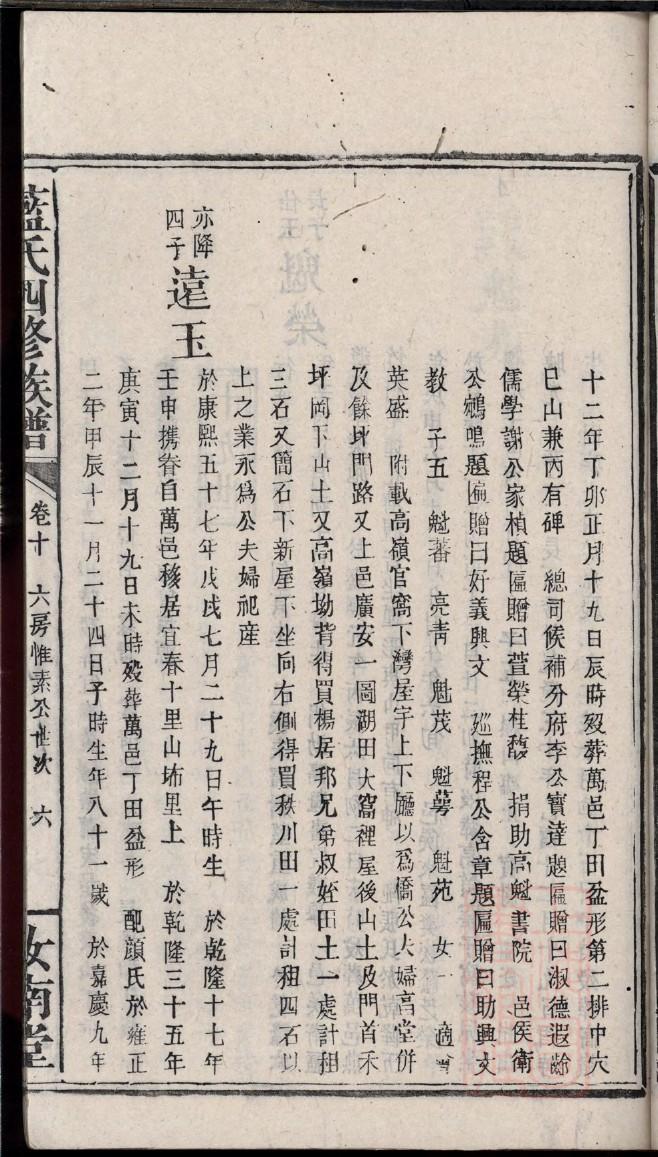 十二年丁卯正月十九日辰時歿葬萬邑丁田盆形第二排中穴
巳山兼丙有碑　總司候補分府李公寳達題匾贈曰淑德遐齡
儒學謝公家楨題匾贈曰萱榮桂馥　捐助高魁書院　邑侯衛
公鵷鳴題匾贈曰好義興文　廵撫程公含章題匾贈曰助興文
教　子五　魁蕃　亮靑　魁茂　魁蕚　魁苑　女一　適曾
英盛　附載高嶺官窩下灣屋宇上下廳以爲橋公夫婦髙堂併
及餘坪門路又上邑廣安一圖湖田大窩裡屋後山土及門首禾
坪岡下山土又高嶺坳背得買楊居邦兄弟叔姪田土一處計租
三石又簡石下新屋下坐向右側得買秩川田一處計租四石以
上之業永爲公夫婦祀産
亦降
四子
遠玉
於康熙五十七年戊戌七月二十九日午時生　於乾隆十七年
壬申攜眷自萬邑移居宜春十里山坊里上　於乾隆三十五年
庚寅十二月十九日未時歿葬萬邑丁田盆形　配顔氏於雍正
二年甲辰十一月二十四日子時生年八十一歲　於嘉慶九年
藍氏四修族譜
卷十　六房惟素公世次　六
汝南堂